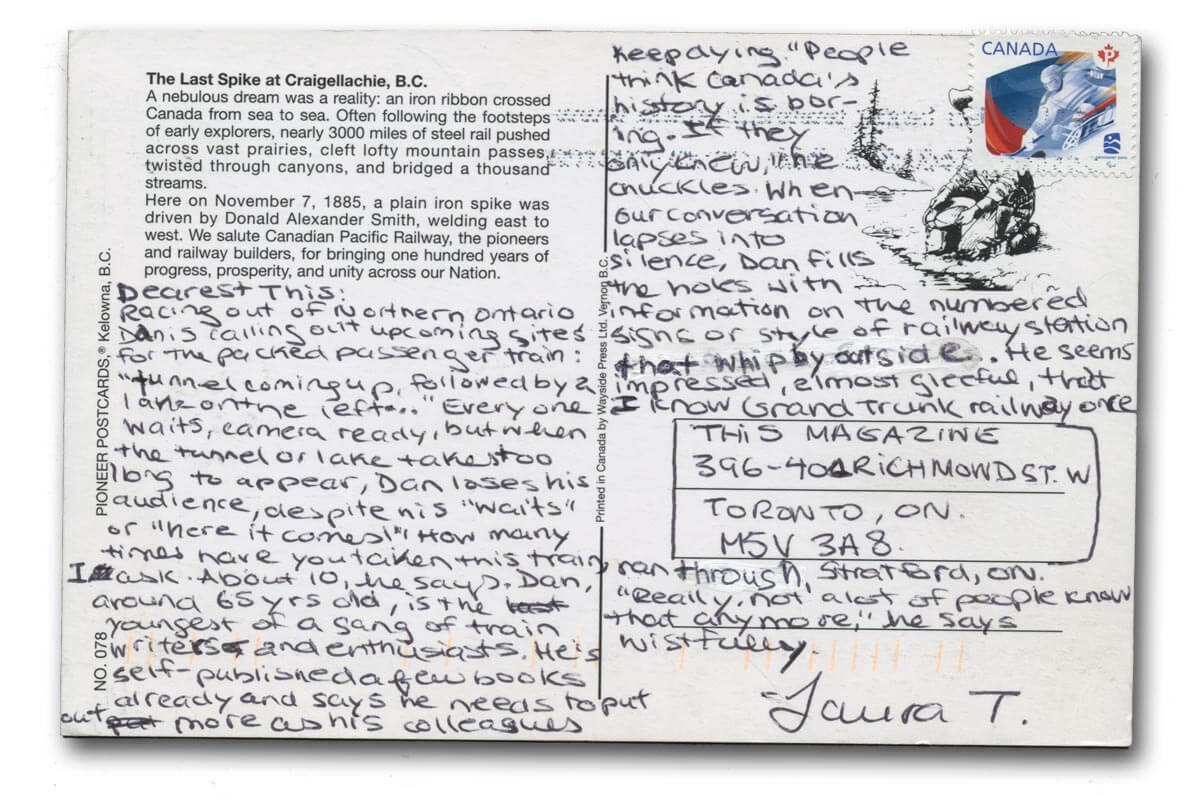 The Last Spike at Craigellachie, B.C.
A nebulous dream was a reality: an iron ribbon crossed
Canada from sea to sea. Often following the footsteps
of early explorers, nearly 3000 miles of steel rail pushed
across vast prairies, cleft lofty mountain passes,
twisted through canyons, and bridged a thousand
streams.
Here on November 7, 1885, a plain iron spike was
driven by Donald Alexander Smith, welding east to
west. We salute Canadian Pacific Railway, the pioneers
and railway builders, for bringing one hundred years of
progress, prosperity, and unity across our Nation.
NO. 078 PIONEER POSTCARDS,® Kelowna, B.C.
Dearest This:
Racing out of Northern Ontario
Dan is calling out upcoming sites
for the packed passenger train:
"tunnel coming up, followed by a
lake on the left..." Everyone
waits, camera ready, but when
the tunnel or lake takes too
long to appear, Dan loses his
audience, despite his "waits"
or "here it comes!" How many
times have you taken this train,
I ask. About 10, he says. Dan,
around 65 yrs old, is the
youngest of a gang of train
writers and enthusiasts. He's
self-published a few books
already and says he needs to put
out more as his colleagues
Printed in Canada by Wayside Press Ltd. Vernon B.C.
keep dying. "People
think Canada's
history is bor-
ing. If they
only knew," he
chuckles. When
our conversation
lapses into
silence, Dan fills
the holes with
information on the numbered
signs or style of railway station
that whip by outside. He seems
impressed, almost gleeful, that
I know Grand Trunk railway once
ran through Stratford, ON.
"Really, not a lot of people know
that anymore," he says
wistfully.
Laura T.
THIS MAGAZINE
396-401 RICHMOND ST. W
TORONTO, ON.
M5V 3A8.
CANADA
P